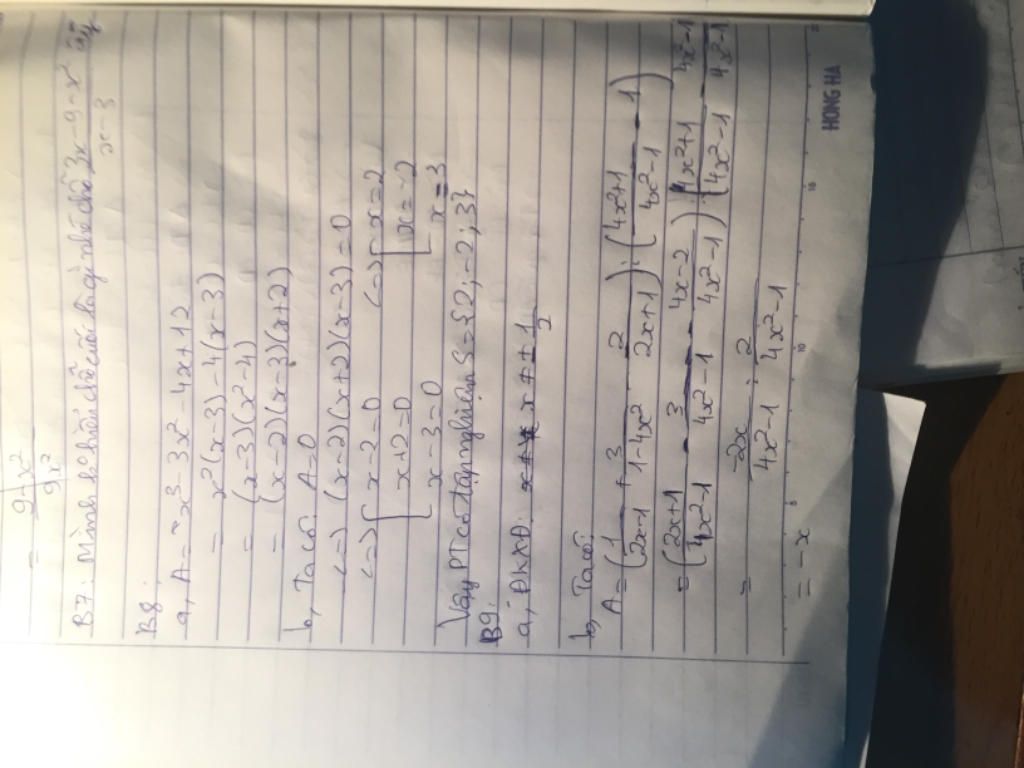 = 9-x² / 9x²
B7: Mình ko hiểu đề của bài
B8:
a, A = x³ - 3x² - 4x + 12
= x²(x-3) - 4(x-3)
= (x-3)(x²-4)
= (x-2)(x-3)(x+2)
b, Ta có: A=0
<=> (x-2)(x+2)(x-3)=0
<=> [x-2=0 <=> [x=2
x+2=0 x=-2
x-3=0 x=3
Vậy PT có tập nghiệm S={2;-2;3}
B9:
a, ĐKXĐ: x ≠ ± 1/2
b, Ta có:
A = (1/2x-1 + 3/1-4x² - 2/2x+1) : (4x²+1/4x²-1 - 1)
= (2x+1/4x²-1 - 3/4x²-1 - 4x-2/4x²-1) : (4x²+1/4x²-1 - 4x²-1/4x²-1)
= -2x/4x²-1 : 2/4x²-1
= -x
HONG HA